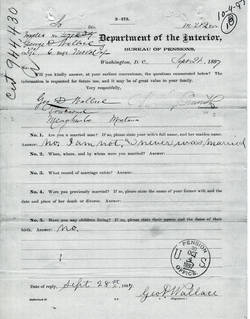 3-173.
Department of the Interior,
BUREAU OF PENSIONS,
Washington, D. C.,
Will you kindly answer, at your earliest convenience, the questions enumerated below? The information is
requested for future use, and it may be of great value to your family.
Very respectfully,
No. 1. Are you a married man? If so, please state your wife's full name, and her maiden name.
Answer: No. I am not, I never was married
No. 2. When, where, and by whom were you married? Answer:
No. 3. What record of marriage exists? Answer:
No. 4. Were you previously married? If so, please state the name of your former wife and the
date and place of her death or divorce. Answer:
No. 5. Have you any children living? If so, please state their names and the dates of their
birth. Answer: No.
PENSION
OFFICE
U S
Date of reply, Sept 28th, 1897
Geo D Wallace